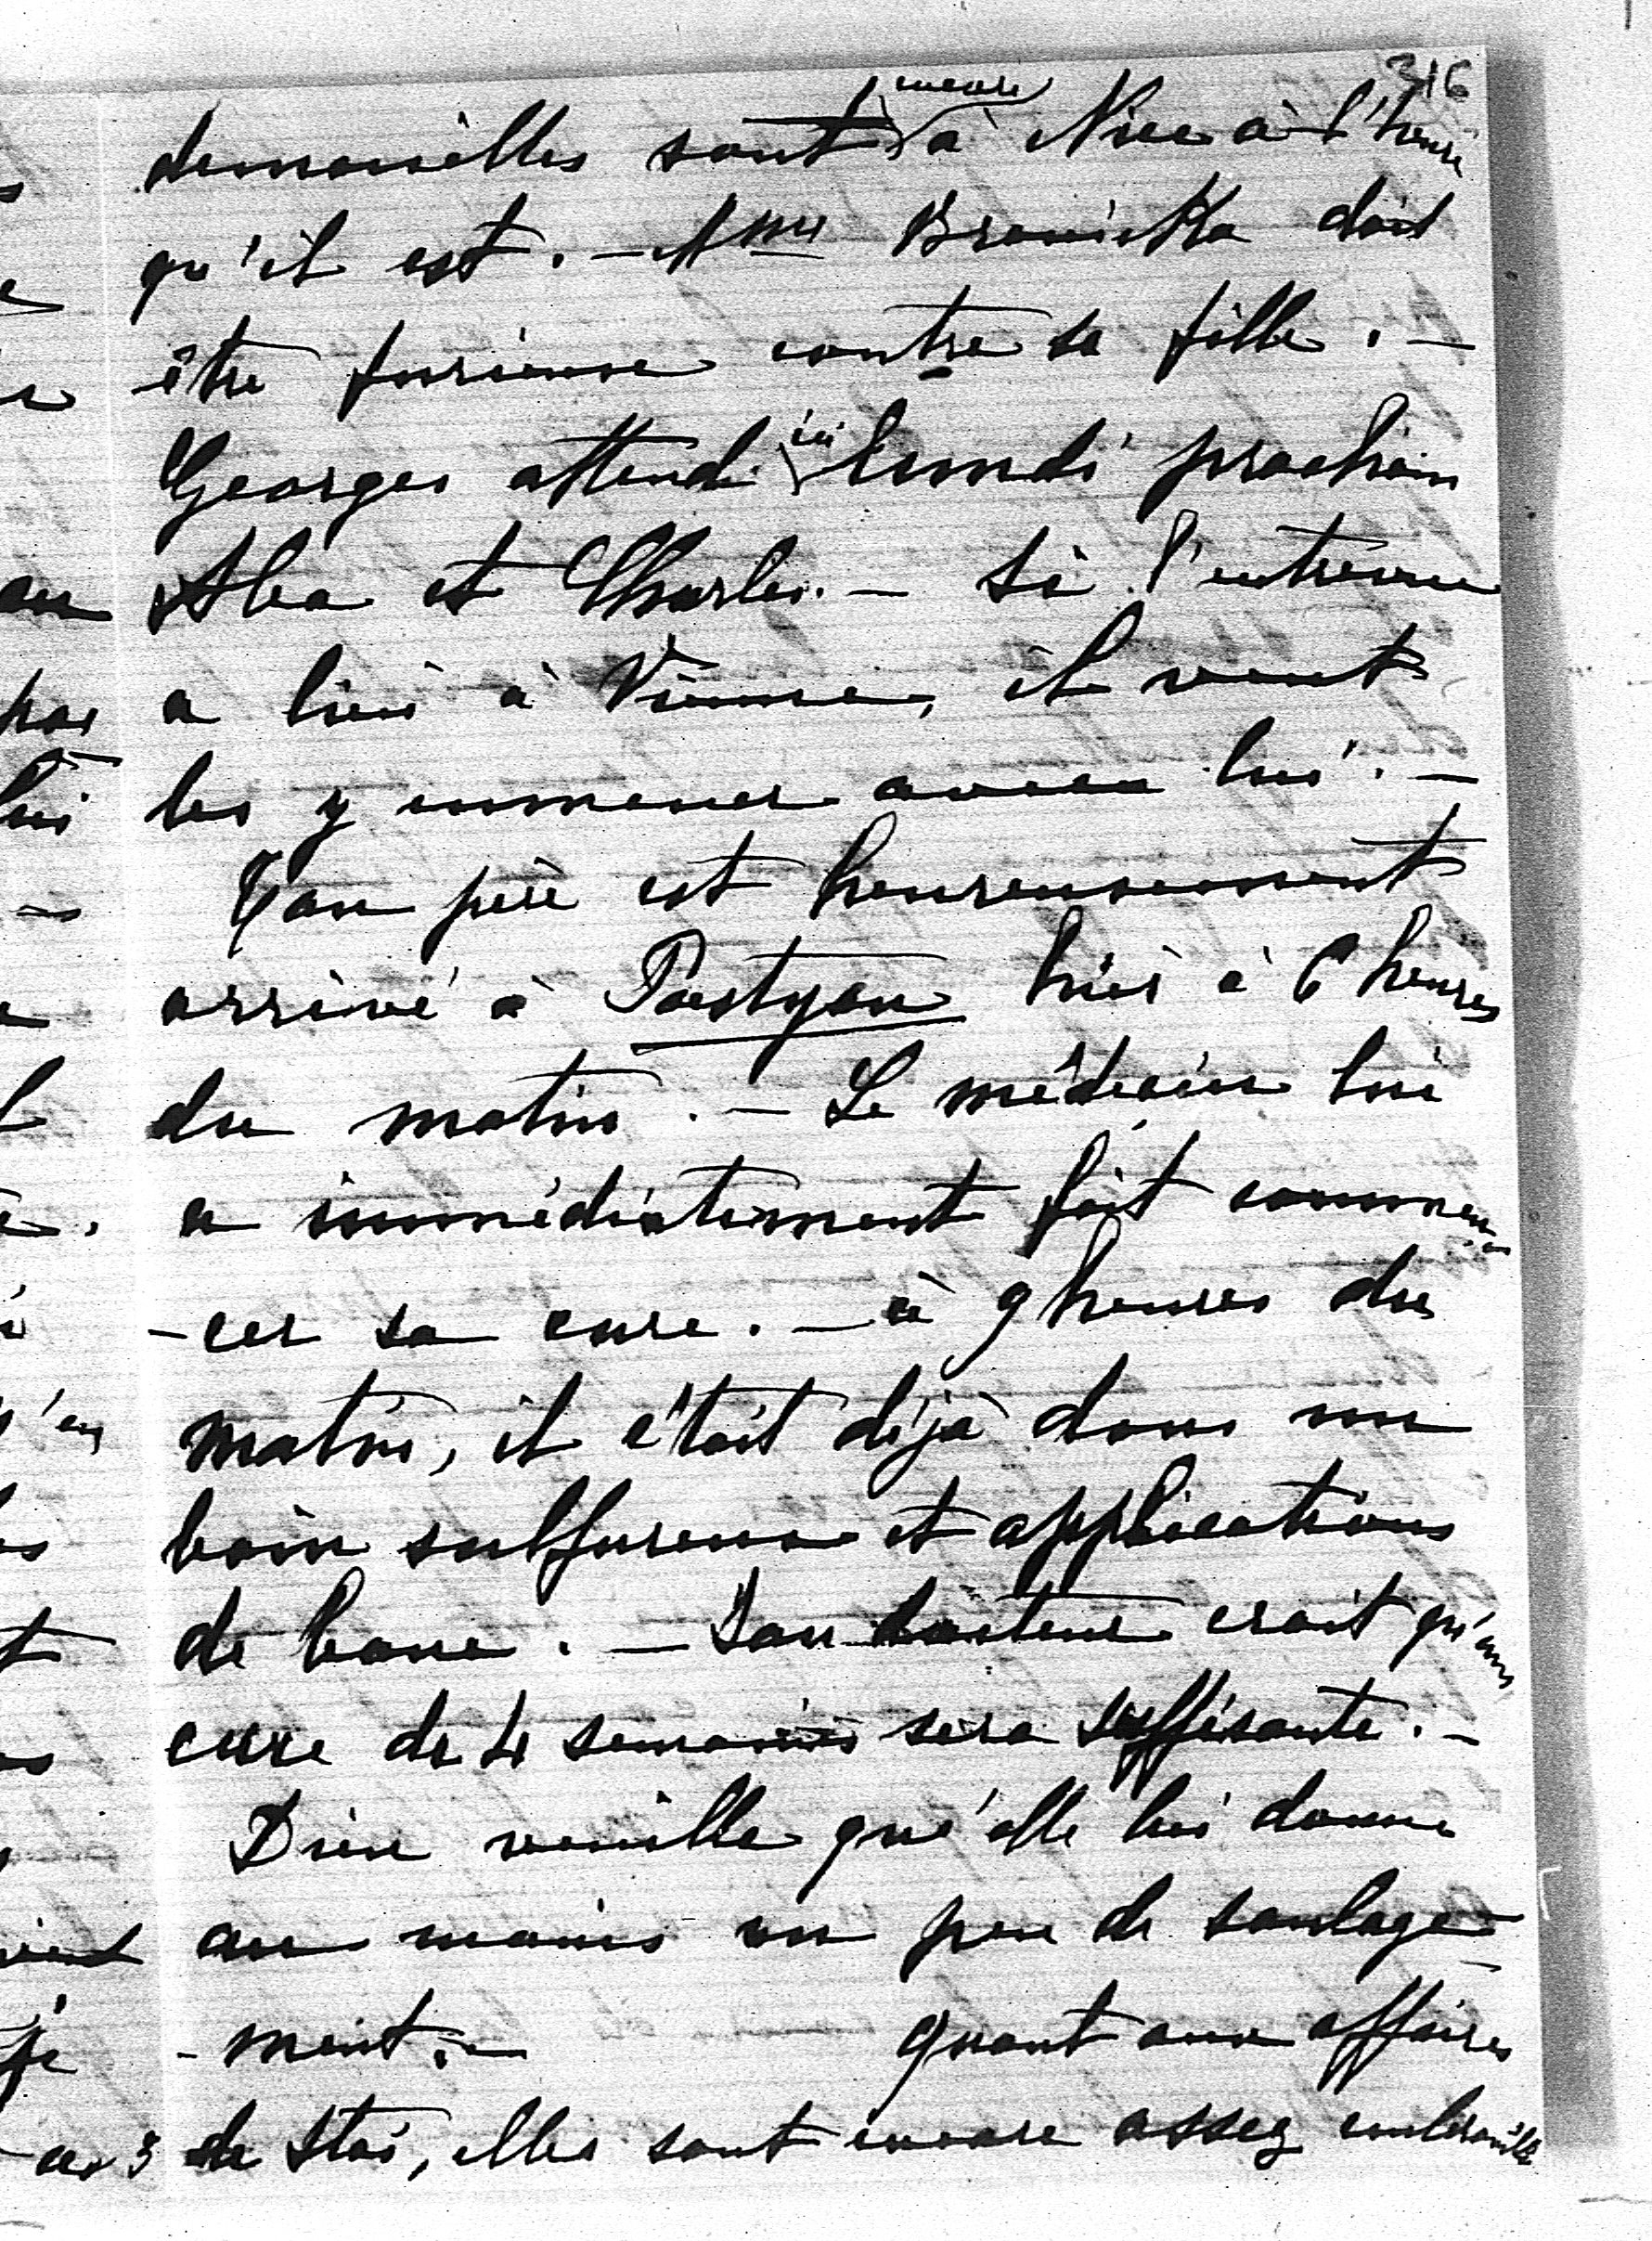 316
demoiselles sont encore à Nice à l'heure
qu'il est. — Mme Branicka doit
être furieuse contre sa fille. —
Georges attend ici lundi prochain
Alba et Charles. — Si l'entrevue
a lieu à Vienne, il veut
les y emmener avec lui. —
Ton père est heureusement
arrivé à Pöstyan hier à 6 heures
du matin. — Le médecin lui
a immédiatement fait commen
-cer sa cure. — à 9 heures du
matin, il était déjà dans un
bain sulfureux et applications
de boue. — Son docteur croit qu'une
cure de 4 semaines sera suffisante. —
Dieu veuille qu'elle lui donne
au moins un peu de soulage-
-ment. — quant aux affaires
de Stas, elles sont encore assez embrouillé